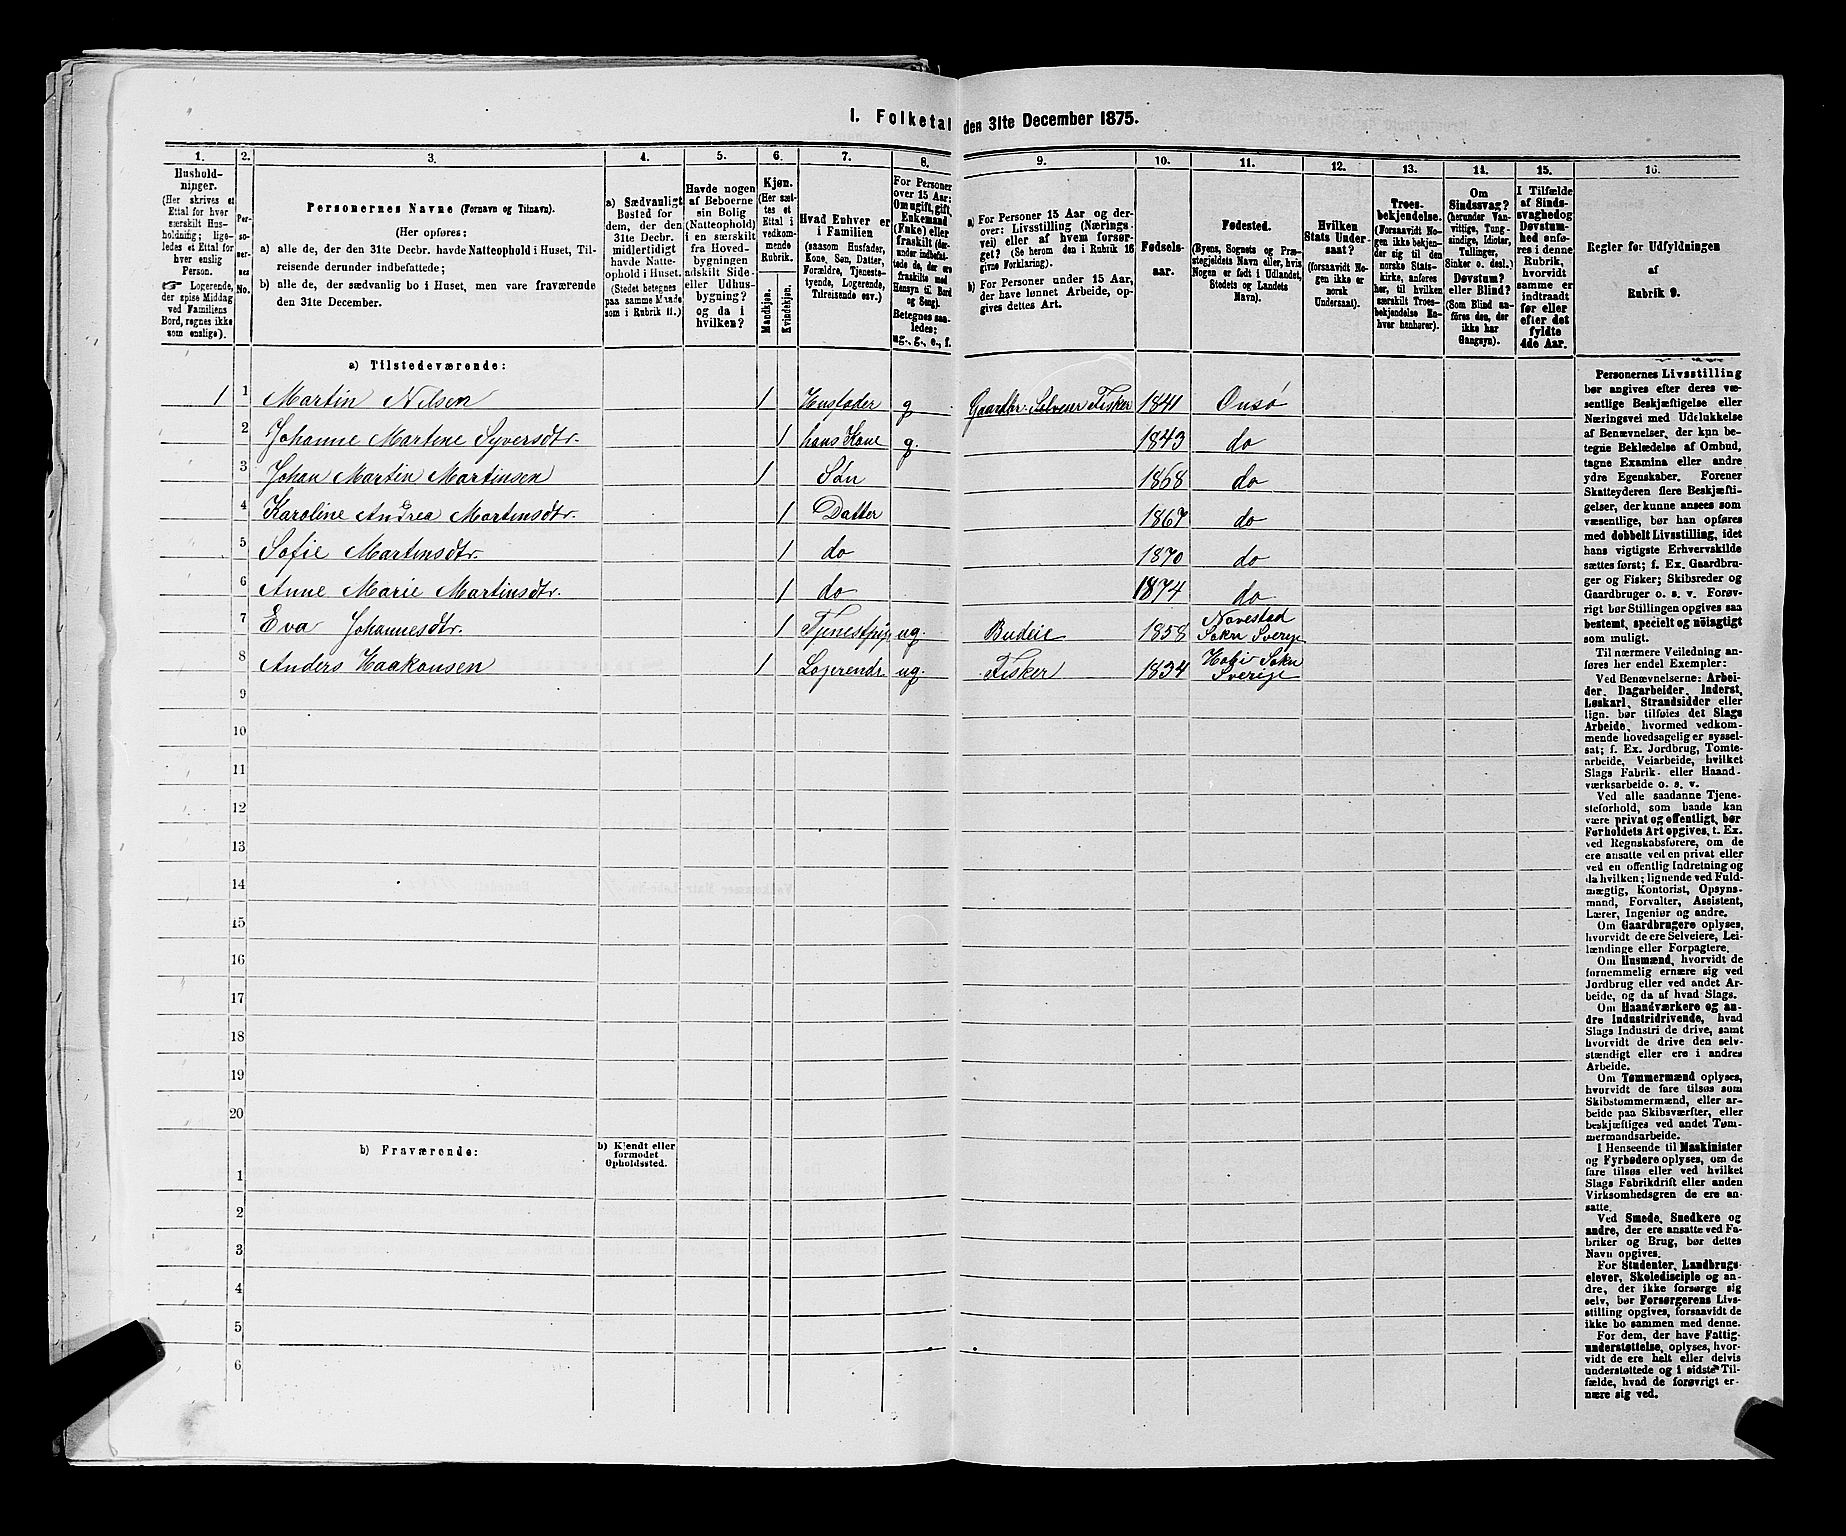 I. Folketal den 31te December 1875.
1. 2. 3. 4. 5. 6. 7. 8. 9. 10. 11. 12. 13. 14. 15. 16.
Hushold-
ninger.
(Her skrives et
Ettal for hver
særskilt Hus-
holdning; lige-
ledes et Ettal for
hver enslig
Person.
☞ Logerende,
der spise Middag
ved Familiens
Bord, regnes ikke
som enslige).
Per-
so-
ner-
nes
No.
Personernes Navne (Fornavn og Tilnavn).
(Her opføres:
a) alle de, der den 31te Decbr. havde Natteophold i Huset, Til-
reisende derunder indbefattede;
b) alle de, der sædvanlig bo i Huset, men vare fraværende
den 31te December.
a) Sædvanligt
Bosted for
dem, der den
31te Decbr.
midlertidigt
havde Natte-
ophold i Huset.
(Stedet betegnes
paa samme Maade
som i Rubrik 11.)
Havde nogen
af Beboerne
sin Bolig
(Natteophold)
i en særskilt
fra Hoved-
bygningen
adskilt Side-
eller Udhus-
bygning?
og da i
hvilken?
Kjøn.
(Her sæt-
tes et
Ettal i
vedkom-
mende
Rubrik.
Mandkjøn.
Kvindekjøn.
Hvad Enhver er
i Familien
(saasom Husfader,
Kone, Søn, Datter,
Forældre, Tjeneste-
tyende, Logerende,
Tilreisende osv.)
For Personer
over 15 Aar:
Om ugift, gift,
Enkemand
(Enke) eller
fraskilt (der-
under indbefat-
tede de, der ere
fraskilte med
Hensyn til Bord
og Seng).
Betegnes saa-
ledes:
ug., g., e., f.
a) For Personer 15 Aar og der-
over: Livsstilling (Nærings-
vei) eller af hvem forsør-
get? (Se herom den i Rubrik 16
givne Forklaring).
b) For Personer under 15 Aar,
der have lønnet Arbeide, op-
gives dettes Art.
Fødsels-
aar.
Fødested.
(Byens, Sognets og Præ-
stegjeldets Navn eller, hvis
Nogen er født i Udlandet,
Stedets og Landets
Navn).
Hvilken
Stats Under-
saat?
(forsaavidt No-
gen ikke er
norsk
Undersaat).
Troes-
bekjendelse.
(Forsaavidt No-
gen ikke bekjen-
der sig til den
norske Stats-
kirke, anføres
her, til hvilken
særskilt Troes-
bekjendelse En-
hver henhører).
Om
Sindssvag?
(herunder Van-
vittige, Tung-
sindige, Idioter,
Tullinger,
Sinker o. desl.)
Døvstum?
eller Blind?
(Som Blind an-
føres den, der
ikke har
Gangsyn).
I Tilfælde
af Sinds-
svaghed og
Døvstum-
hed anfø-
res i denne
Rubrik,
hvorvidt
samme er
indtraadt
før eller
efter det
fyldte
4de Aar.
Regler for Udfyldningen
af
Rubrik 9.
a) Tilstedeværende:
1 1 Martin Nilsen 1 Husfader g Gaardbr. Selveier Fisker 1841 Onsø
2 Johanne Martine Syversdtr. 1 hans Kone g. 1843 do
3 Johan Martin Martinsen 1 Søn 1868 do
4 Karoline Andrea Martinsdtr. 1 Datter 1867 do
5 Sofie Martinsdtr. 1 do 1870 do
6 Anne Marie Martinsdtr. 1 do 1874 do
7 Eva Johannesdtr. 1 Tjenestpige ug. Budeie 1858 Navestad
Sokn Sverige
8 Anders Haakonsen 1 Logerende ug. Fisker 1834 Sokn
Sverige
9
10
11
12
13
14
15
16
17
18
19
20
b) Fraværende:
b) Kjendt eller
formodet
Opholdssted.
1
2
3
4
5
6
Personernes Livsstilling
bør angives efter deres væ-
sentlige Beskjæftigelse eller
Næringsvei med Udelukkelse
af Benævnelser, der kun be-
tegne Beklædelse af Ombud,
tagne Examina eller andre
ydre Egenskaber. Forener
Skatteyderen flere Beskjæfti-
gelser, der kunne ansees som
væsentlige, bør han opføres
med dobbelt Livsstilling, idet
hans vigtigste Erhvervskilde
sættes først; f. Ex. Gaardbru-
ger og Fisker; Skibsreder og
Gaardbruger o. s. v. Forøv-
rigt bør Stillingen opgives saa
bestemt, specielt og nøiagtigt
som muligt.
Til nærmere Veiledning an-
føres her endel Exempler:
Ved Benævnelserne: Arbei-
der, Dagarbeider, Inderst,
Løskarl, Strandsidder eller
lign. bør tilføies det Slags
Arbeide, hvormed vedkom-
mende hovedsagelig er syssel-
sat; f. Ex. Jordbrug, Tomte-
arbeide, Veiarbeide, hvilket
Slags Fabrik- eller Haand-
værksarbeide o. s. v.
Ved alle saadanne Tjene-
steforhold, som baade kan
være privat og offentligt, bør
Forholdets Art opgives, t. Ex.
ved Regnskabsførere, om de
ere ansatte ved en privat eller
ved en offentlig Indretning og
da hvilken; lignende ved Fuld-
mægtig, Kontorist, Opsyns-
mand, Forvalter, Assistent,
Lærer, Ingeniør og andre.
Om Gaardbrugere oplyses,
hvorvidt de ere Selveiere, Lei-
lændinge eller Forpagtere.
Om Husmænd, hvorvidt de
fornemmelig ernære sig ved
Jordbrug eller ved andet Ar-
beide, og da af hvad Slags.
Om Haandværkere og an-
dre Industridrivende, hvad
Slags Industri de drive, samt
hvorvidt de drive den selv-
stændigt eller ere i andres
Arbeide.
Om Tømmermænd oplyses,
hvorvidt de fare tilsøs som
Skibstømmermænd, eller ar-
beide paa Skibsværfter, eller
beskjæftiges ved andet Tøm-
mermandsarbeide.
I Henseende til Maskinister
og Fyrbødere oplyses, om de
fare tilsøs eller ved hvilket
Slags Fabrikdrift eller anden
Virksomhedsgren de ere an-
satte.
Ved Smede, Snedkere og
andre, der ere ansatte ved Fa-
briker og Brug, bør dettes
Navn opgives.
For Studenter, Landbrugs-
elever, Skoledisciple og an-
dre, der ikke forsørge sig
selv, bør Forsørgerens Livs-
stilling opgives, forsaavidt de
ikke bo sammen med denne.
For dem, der have Fattig-
understøttelse, oplyses, hvor-
vidt de ere helt eller delvis
understøttede og i sidste Til-
fælde, hvad de forøvrigt er-
nære sig ved.